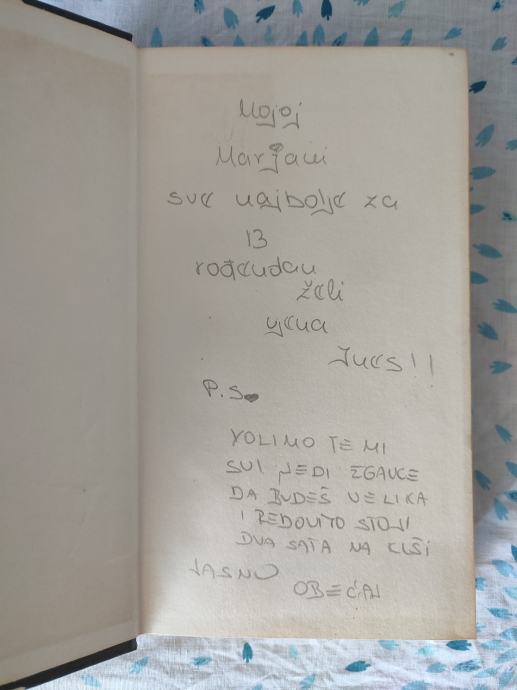 Mojoj
Marjani
sve najbolje za
13
rođendan
želi
njena
Ines!!
P.S.
VOLIMO TE MI
SVI JEDI ŽGANCE
DA BUDEŠ VELIKA
I REDOVITO STOJI
DVA SATA NA KIŠI
JASNO
OBEĆAJ